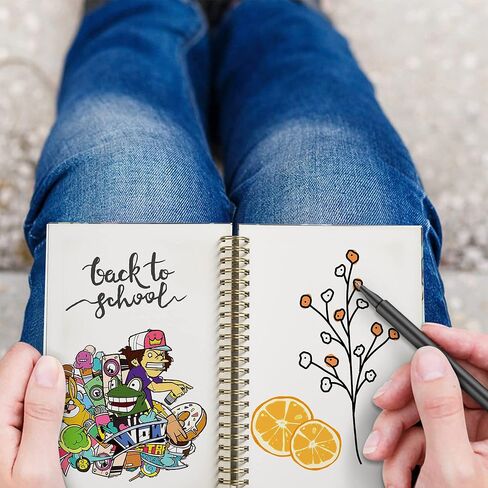 back to
school
WOW